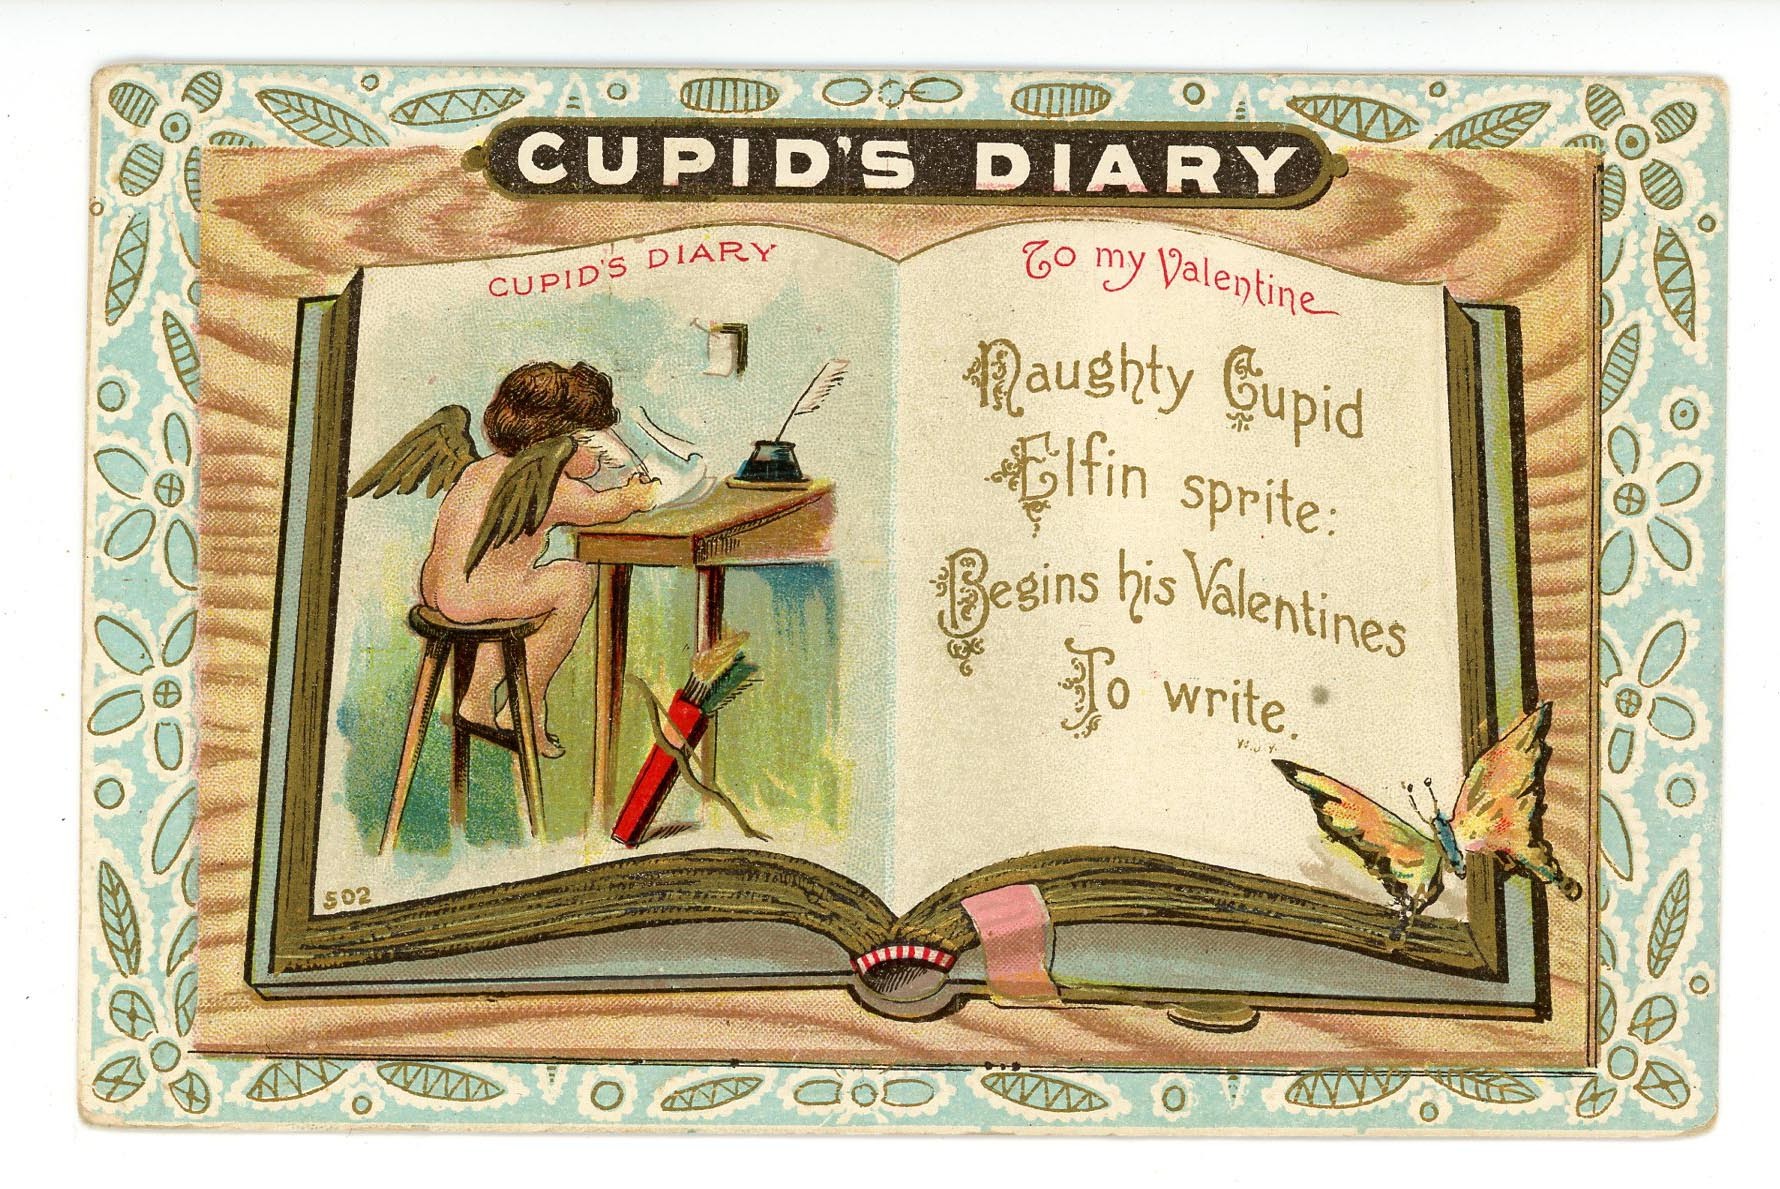 CUPID'S DIARY
CUPID'S DIARY
502
To my Valentine
Naughty Cupid
Elfin sprite:
Begins his Valentines
To write.